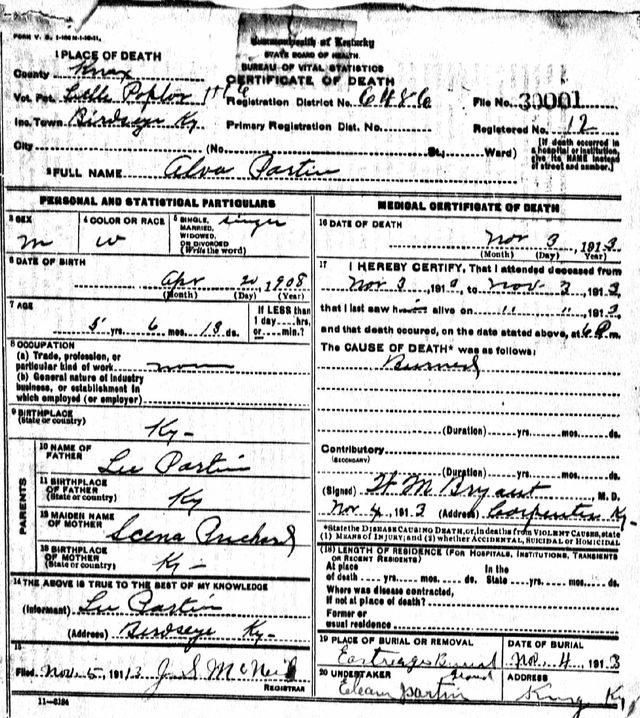 FORM V. S. 1-100M-1-26-11.
Commonwealth of Kentucky
STATE BOARD OF HEALTH
BUREAU OF VITAL STATISTICS
CERTIFICATE OF DEATH
1 PLACE OF DEATH
County Knox
Vot. Pct. Little Poplar Registration District No. 6486 File No. 30001
Inc. Town Birdseye Ky Primary Registration Dist. No. Registered No. 12
City (No. St.; Ward) [If death occurred in a hospital or institution, give its NAME instead of street and number.]
2 FULL NAME Alva Partin
PERSONAL AND STATISTICAL PARTICULARS
3 SEX 4 COLOR OR RACE 5 SINGLE, MARRIED, WIDOWED, OR DIVORCED (Write the word)
m w single
6 DATE OF BIRTH
Apr 20, 1908
(Month) (Day) (Year)
7 AGE If LESS than 1 day....hrs, or....min.?
5 yrs. 6 mos. 13 ds.
8 OCCUPATION
(a) Trade, profession, or
particular kind of work none
(b) General nature of industry
business, or establishment in
which employed (or employer)
9 BIRTHPLACE
(State or country) Ky-
PARENTS
10 NAME OF
FATHER
Lee Partin
11 BIRTHPLACE
OF FATHER
(State or country) Ky
12 MAIDEN NAME
OF MOTHER
Scena
13 BIRTHPLACE
OF MOTHER
(State or country) Ky-
14 THE ABOVE IS TRUE TO THE BEST OF MY KNOWLEDGE
(Informant) Lee Partin
(Address) Birdseye Ky-
15
Filed Nov. 5, 1913 J S McNeil
REGISTRAR
11-6184
MEDICAL CERTIFICATE OF DEATH
16 DATE OF DEATH
Nov 3, 1913
(Month) (Day) (Year)
17 I HEREBY CERTIFY, That I attended deceased from
Nov 3, 191 , to Nov 3, 1913,
that I last saw h alive on " ", 1913,
and that death occured, on the date stated above, at 6 P m.
The CAUSE OF DEATH* was as follows:
Burned
(Duration) yrs. mos. ds.
Contributory
(SECONDARY)
(Duration) yrs. mos. ds.
(Signed) W M Bryant M. D.
Nov 4, 1913 (Address) Carpenter Ky-
*State the DISEASE CAUSING DEATH, or, in deaths from VIOLENT CAUSES, state
(1) MEANS OF INJURY; and (2) whether ACCIDENTAL, SUICIDAL or HOMICIDAL
(18) LENGTH OF RESIDENCE (FOR HOSPITALS, INSTITUTIONS, TRANSIENTS
OR RECENT RESIDENTS)
At place In the
of death yrs. mos. ds. State yrs. mos. ds.
Where was disease contracted,
If not at place of death?
Former or
usual residence
19 PLACE OF BURIAL OR REMOVAL DATE OF BURIAL
Burial Nov. 4, 1913
Ground
20 UNDERTAKER ADDRESS
Partin Ky